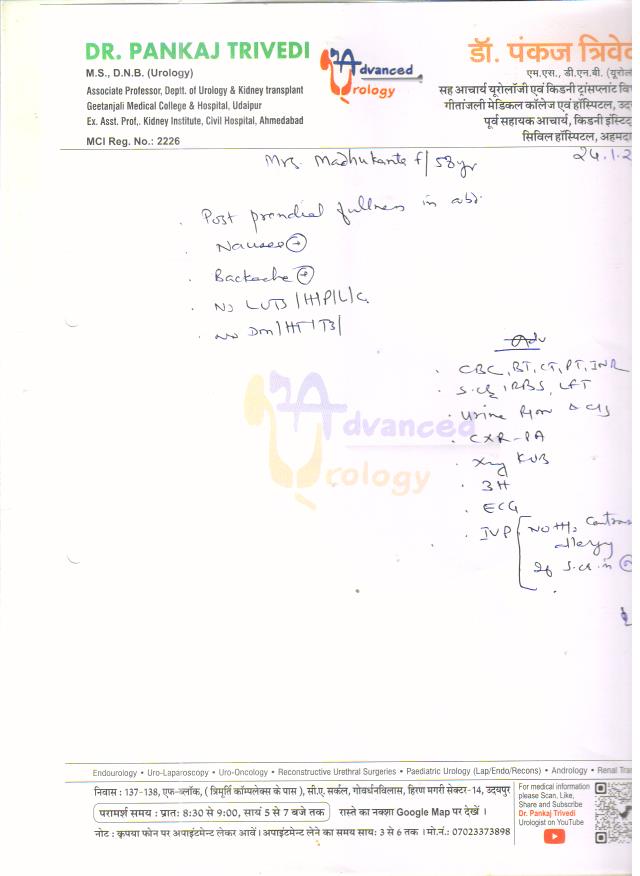 DR. PANKAJ TRIVEDI
M.S., D.N.B. (Urology)
Associate Professor, Deptt. of Urology & Kidney transplant
Geetanjali Medical College & Hospital, Udaipur
Ex. Asst. Prof,. Kidney Institute, Civil Hospital, Ahmedabad
MCI Reg. No.: 2226
Advanced
Urology
डॉ. पंकज त्रिवे
एम.एस., डी.एन.बी. (यूरोल
सह आचार्य यूरोलॉजी एवं किडनी ट्रांसप्लांट वि
गीतांजली मेडिकल कॉलेज एवं हॉस्पिटल, उद
पूर्व सहायक आचार्य, किडनी इंस्टि
सिविल हॉस्पिटल, अहमदा
24.1.2
Mrs. Madhukanta f/58yr
. Post prandial fullness in abd.
. Nausea +
. Backache +
. No LUTS/H/P/L/G
. No DM/HT/TB/
Adv
. CBC, BT, CT, PT, INR
. S.Cr, RBS, LFT
. Urine R/M & C/S
. CXR-PA
. Xray KUB
. 3H
. ECG
. IVP No H/o Contras
allergy
If S.Cr in
Advanced
Urology
Endourology • Uro-Laparoscopy • Uro-Oncology • Reconstructive Urethral Surgeries • Paediatric Urology (Lap/Endo/Recons) • Andrology • Renal Tra
निवास : 137-138, एफ-ब्लॉक, ( त्रिमूर्ति कॉम्पलेक्स के पास ), सी.ए. सर्कल, गोवर्धनविलास, हिरण मगरी सेक्टर-14, उदयपुर
परामर्श समय : प्रात: 8:30 से 9:00, सायं 5 से 7 बजे तक रास्ते का नक्शा Google Map पर देखें ।
नोट : कृपया फोन पर अपाइंटमेन्ट लेकर आवें। अपाइंटमेन्ट लेने का समय साय: 3 से 6 तक । मो.नं.: 07023373898
For medical information
please Scan, Like,
Share and Subscribe
Dr. Pankaj Trivedi
Urologist on YouTube